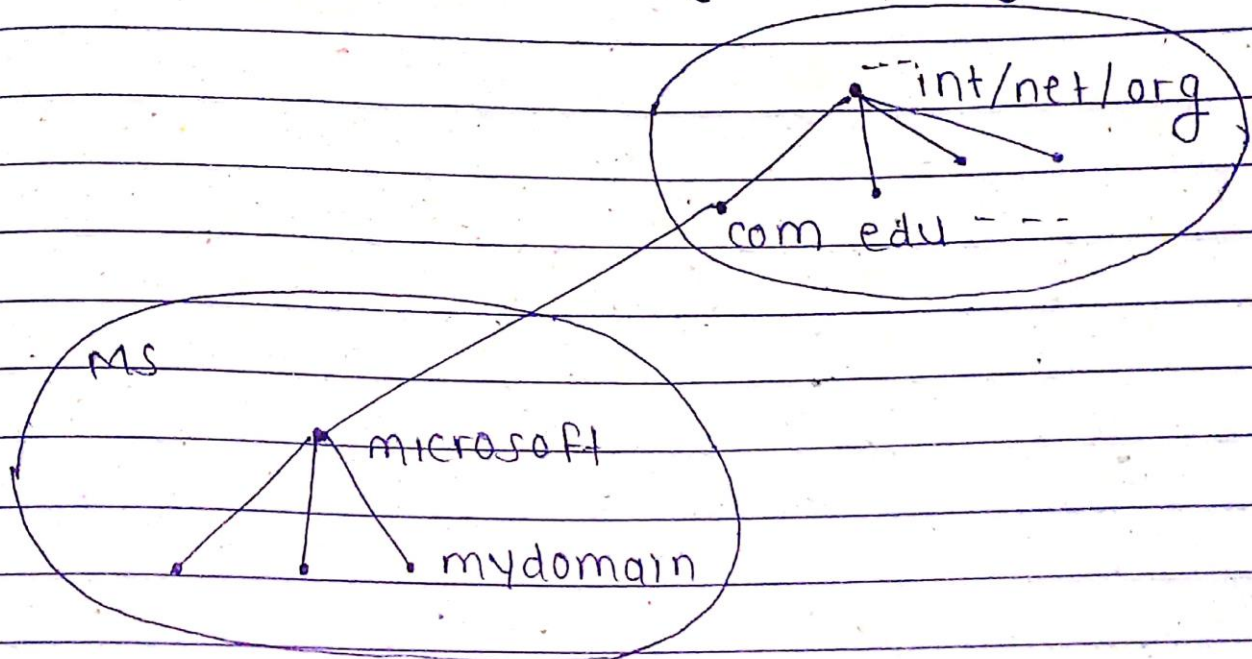 ---int/net/org
com edu ----
MS
microsoft
mydomain